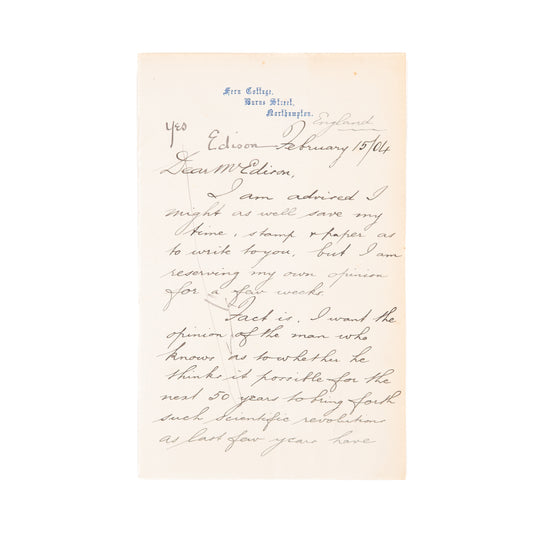 Fern Cottage,
Burns Street,
Northampton.
England
Yes
Edison February 15/04
Dear Mr Edison,
I am advised I
might as well save my
time, stamp & paper as
to write to you, but I am
reserving my own opinion
for a few weeks.
Fact is, I want the
opinion of the man who
knows as to whether he
thinks it possible for the
next 50 years to bring forth
such scientific revolutions
as last few years have